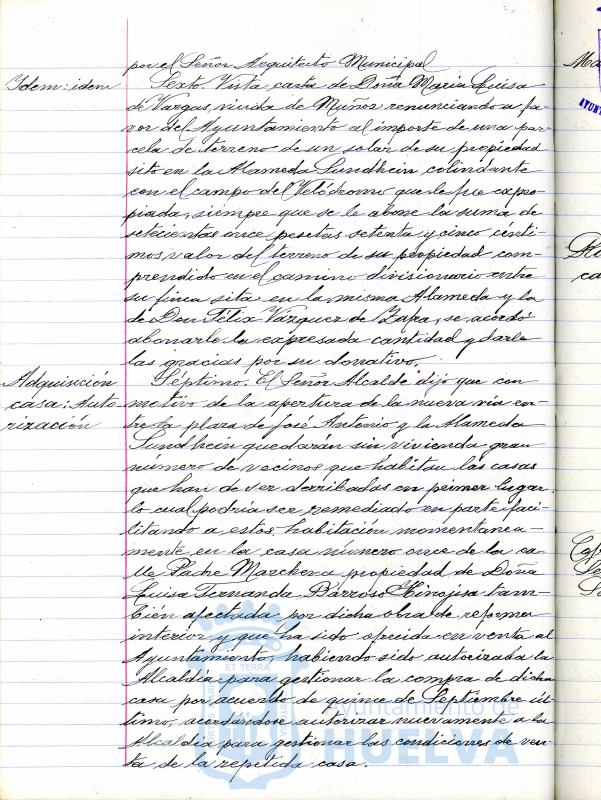 por el Señor Arquitecto Municipal
Idem: idem
Sexto. Vista carta de Doña Maria Luisa
de Vargas, viuda de Muñoz renunciando a fa-
vor del Ayuntamiento al importe de una par-
cela de terreno de un solar de su propiedad
sito en la Alameda Sundhein colindante
con el campo del Velódromo que le fue expro-
piada, siempre que se le abone la suma de
setecientas once pesetas setenta y cinco cénti-
mos, valor del terreno de su propiedad com-
prendido en el camino divisionario entre
su finca sita en la misma Alameda y la
de Don Félix Vázquez de Zafa, se acordó
abonarle la expresada cantidad y darle
las gracias por su donativo.
Adquisición
casa: Auto
rización
Séptimo. El Señor Alcalde dijo que con
motivo de la apertura de la nueva vía en-
tre la plaza de José Antonio y la Alameda
Sundhein quedarán sin vivienda gran
número de vecinos que habitan las casas
que han de ser derribadas en primer lugar,
lo cual podría ser remediado en parte faci-
litando a estos, habitación momentanea-
mente en la casa número once de la ca-
lle Padre Marchena propiedad de Doña
Luisa Fernanda Barroso Hinojosa tam-
bién afectada por dicha obra de reforma
interior y que ha sido ofrecida en venta al
Ayuntamiento, habiendo sido autorizada la
Alcaldía para gestionar la compra de dicha
casa por acuerdo de quince de Septiembre úl-
timo, acordándose autorizar nuevamente a la
Alcaldía para gestionar las condiciones de ven-
ta de la repetida casa.
ET TERRA
Ayuntamiento de
HUELVA